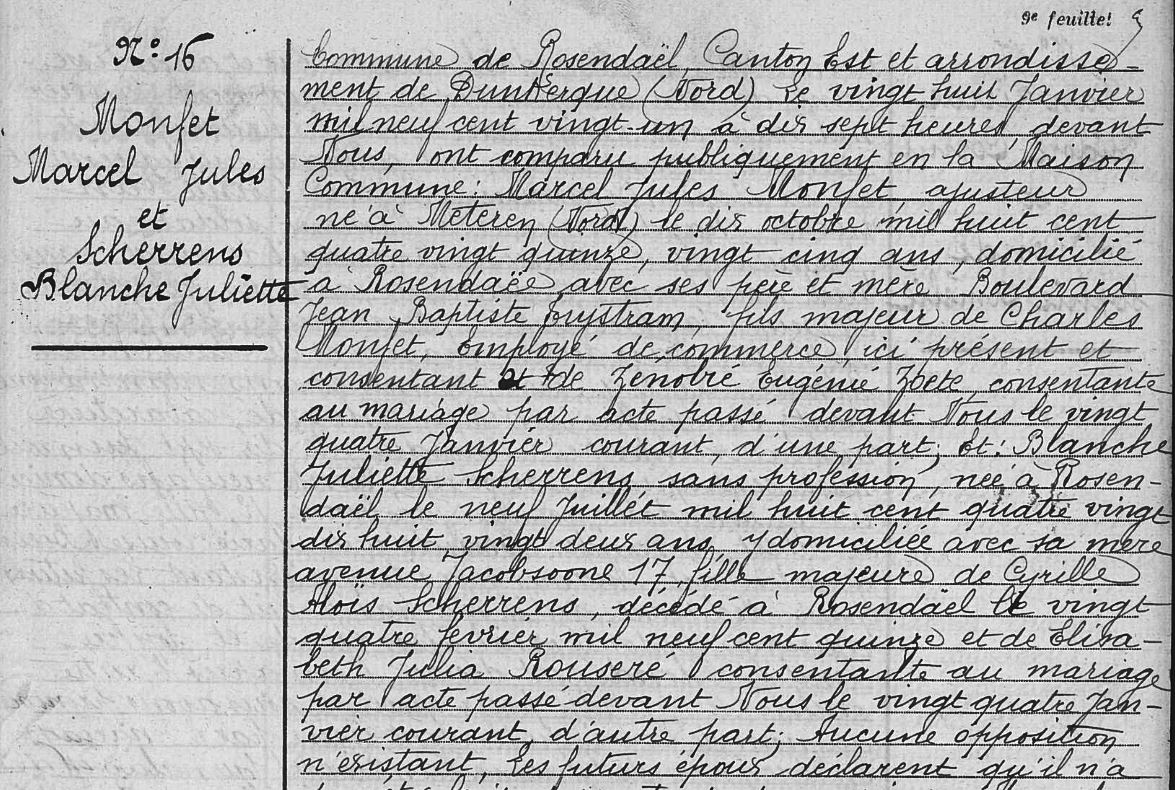 9e feuille!
N° 16
Monfet
Marcel Jules
et
Scherrens
Blanche Juliette
Commune de Rosendaël, Canton Est et arrondisse-
ment de Dunkerque (Nord) Le vingt huit Janvier
mil neuf cent vingt-un à dix sept heures devant
Nous, ont comparu publiquement en la Maison
Commune: Marcel Jules Monfet ajusteur
né à Méteren (Nord) le dix octobre mil huit cent
quatre vingt quinze, vingt cinq ans, domicilié
à Rosendaël avec ses père et mère, Boulevard
Jean Baptiste Trystram, fils majeur de Charles
Monfet, employé de commerce ici présent et
consentant et de Zénobie Eugénie Zoete, consentante
au mariage par acte passé devant Nous le vingt
quatre Janvier courant, d'une part; Et: Blanche
Juliette Scherrens, sans profession, née à Rosen-
daël le neuf Juillet mil huit cent quatre vingt
dix huit, vingt deux ans, y domiciliée avec sa mère
avenue Jacobsoone 17, fille majeure de Cyrille
Aloïs Scherrens, décédé à Rosendaël le vingt
quatre février mil neuf cent quinze et de Elisa-
beth Julia Rouseré consentante au mariage
par acte passé devant Nous le vingt quatre Jan-
vier courant, d'autre part; Aucune opposition
n'existant, Les futurs époux déclarent qu'il n'a